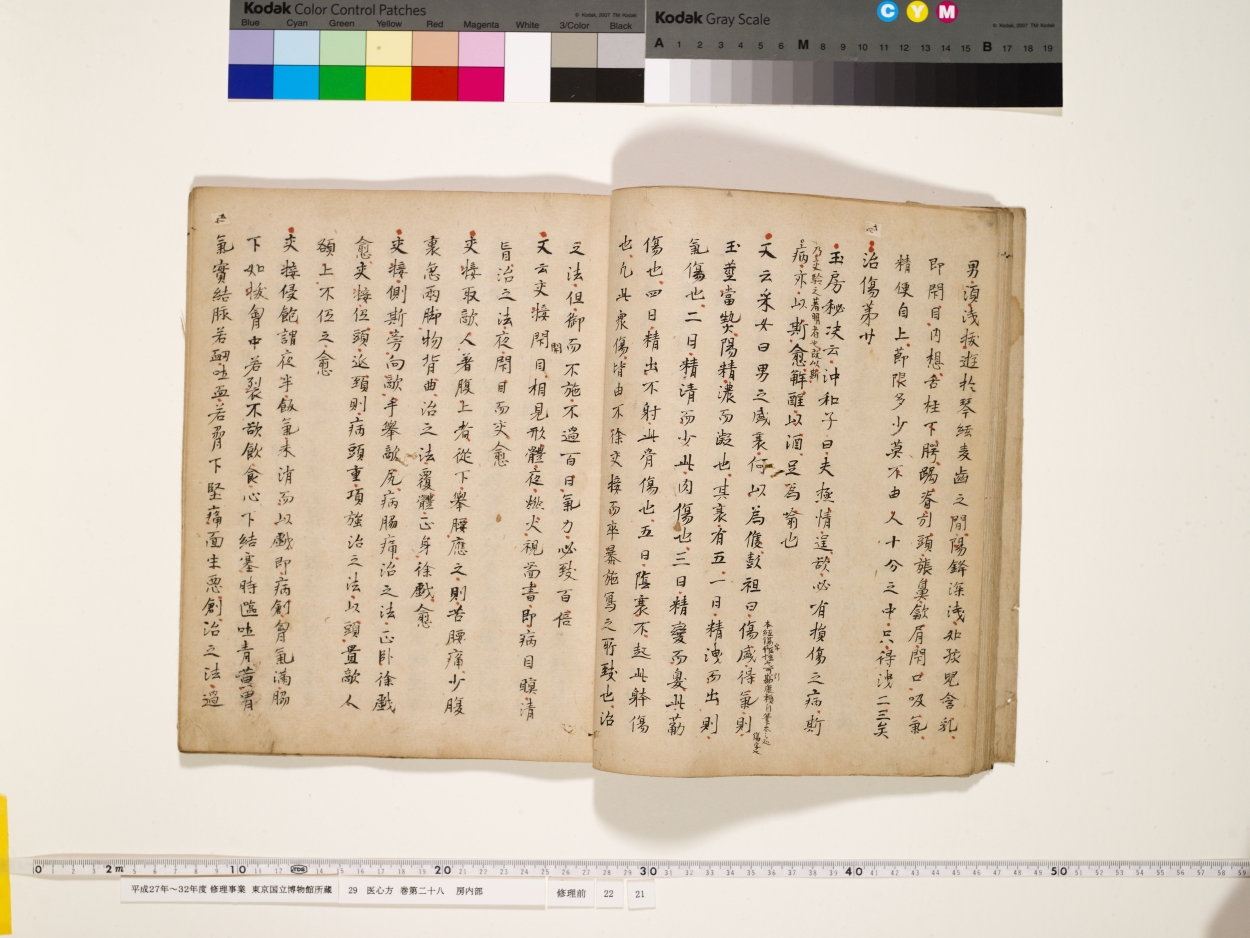 Kodak Color Control Patches
© Kodak, 2007 TM: Kodak
Blue Cyan Green Yellow Red Magenta White 3/Color Black
Kodak Gray Scale
C Y M
© Kodak, 2007 TM: Kodak
A 1 2 3 4 5 6 M 8 9 10 11 12 13 14 15 B 17 18 19
男須淺拔遊於琴絃麦齒之間陽鋒深淺如孩児含乳
即閇目内想舌柱下腭跼脊引頭張鼻歙肩閇口吸氣
精便自上節限多少莫不由人十分之中只得洩二三矣
治傷苐廿
玉房秘决云沖和子曰夫極情逞欲必有損傷之病斯
乃交驗之著明者也既以斯
病亦以斯愈解酲以酒足為喻也
又云采女曰男之盛衰何以為候彭祖曰傷盛得氣則
玉莖當𤍠陽精濃而凝也其衰有五一曰精洩而出則
氣傷也二曰精清而少此肉傷也三曰精變而臭此筋
傷也四曰精出不射此骨傷也五曰陰衰不起此躰傷
也凡此衆傷皆由不徐交接而卒暴施寫之所致也治
之法但御而不施不過百日氣力必致百倍
又云交接開目相見形體夜燃火視圖書即病目瞑清
盲治之法夜閇目而交愈
交接取敵人著腹上者從下舉腰應之則苦腰痛少腹
裏急兩脚物背曲治之法覆體正身徐戯愈
交接側斯旁向敵手舉敵尻病脇痛治之法正卧徐戯
愈交接伍頭延頸則病頭重項強治之法以頭置敵人
額上不伍之愈
交接侵飽謂夜半飯氣未消而以戯即病創胷氣滿脇
下如拔胷中若裂不欲飲食心下結塞時嘔吐青黄胃
氣實結脈若衂吐血若脅下堅痛面生悪創治之法過
0 1 2 3 2m 10 20 30 40 50
平成27年～32年度 修理事業 東京国立博物館所蔵
29 医心方 巻第二十八 房内部
修理前 22 21